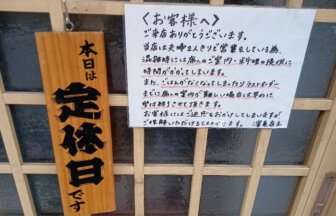 本日は
定休日
です
〈お客様へ〉
ご来店ありがとうございます。
当店は夫婦2人きりで営業をしている為、
混雑時には席へのご案内・料理の提供に
時間がかかってしまいます。
また、ごはんがなくなってしまったりラストオーダー
までに席への案内が難しい場合は早めに
受け終りさせて頂きます。
お客様にはご迷惑をおかけしてしまいますが
ご理解いただけるとたすかります。
店主